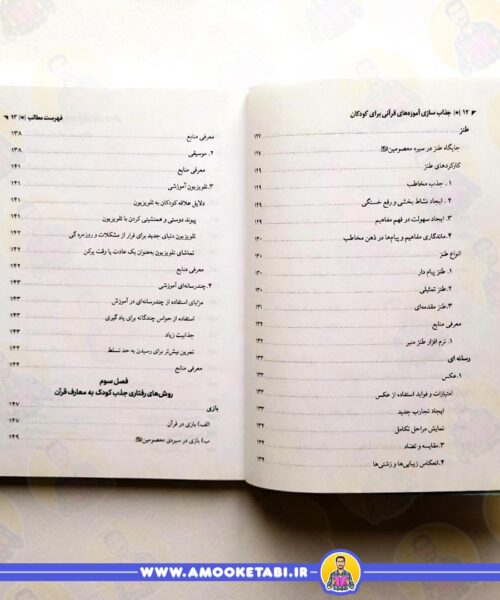 ۱۲ |●| جذاب سازی آموزه‌های قرآنی برای کودکان
طنز ۱۲۷
جایگاه طنز در سیره معصومین ۱۲۷
کارکردهای طنز ۱۲۹
۱. جذب مخاطب ۱۲۹
۲. ایجاد نشاط بخشی و رفع خستگی ۱۲۹
۳. ایجاد سهولت در فهم مفاهیم ۱۲۹
۴.ماندگاری مفاهیم و پیام‌ها در ذهن مخاطب ۱۳۰
انواع طنز ۱۳۰
۱. طنز پیام دار ۱۳۰
۲. طنز تمثیلی ۱۳۰
۳.طنز مقدمه‌ای ۱۳۱
معرفی منابع
۱. نرم افزار طنز منبر
رسانه ای
۱.عکس
امتیازات و فواید استفاده از عکس
ایجاد تجارب جدید
نمایش مراحل تکامل
۳.مقایسه و تضاد
۴.انعکاس زیبایی‌ها و زشتی‌ها
فهرست مطالب |●| ۱۳
معرفی منابع ۱۳۸
۲. موسیقی ۱۳۸
معرفی منابع ۱۴۱
۳.تلویزیون آموزشی ۱۴۱
دلایل علاقه کودکان به تلویزیون ۱۴۱
پیوند دوستی و همنشینی کردن با تلویزیون ۱۴۱
تلویزیون دنیای جدید برای فرار از مشکلات و روزمره گی ۱۴۲
تماشای تلویزیون به‌عنوان یک عادت یا وقت پرکن ۱۴۲
معرفی منابع ۱۴۲
۴.چندرسانه‌ای آموزشی ۱۴۳
مزایای استفاده از چندرسانه‌ای در آموزش ۱۴۳
استفاده از حواس چندگانه برای یاد گیری ۱۴۳
جذابیت زیاد ۱۴۴
تمرین بیش‌تر برای رسیدن به حد تسلط ۱۴۴
معرفی منابع ۱۴۴
فصل سوم
روش‌های رفتاری جذب کودک به معارف قرآن
بازی ۱۴۷
الف) بازی در قرآن ۱۴۷
ب) بازی در سیره‌ی معصومین ۱۴۹
WWW.AMOOKETABI.IR